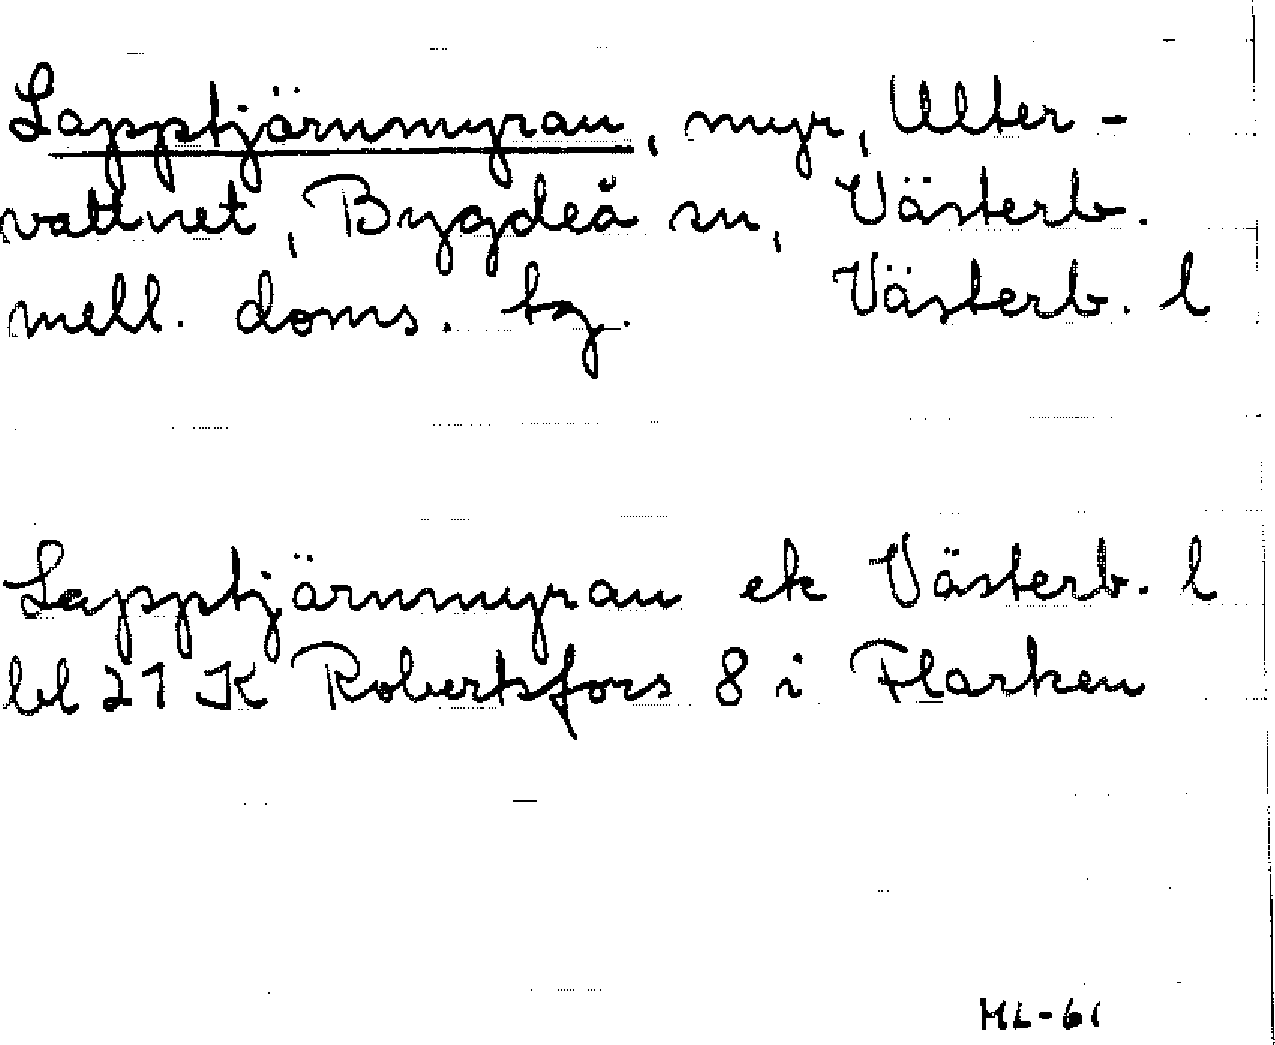 Lapptjärnmyran, myr, Ulter-
vattnet, Bygdeå sn, Västerb.
mell. doms. tg. Västerb. l
Lapptjärnmyran ek Västerb. l
bl 21 K Robertsfors 8 i Flarken
ML-61